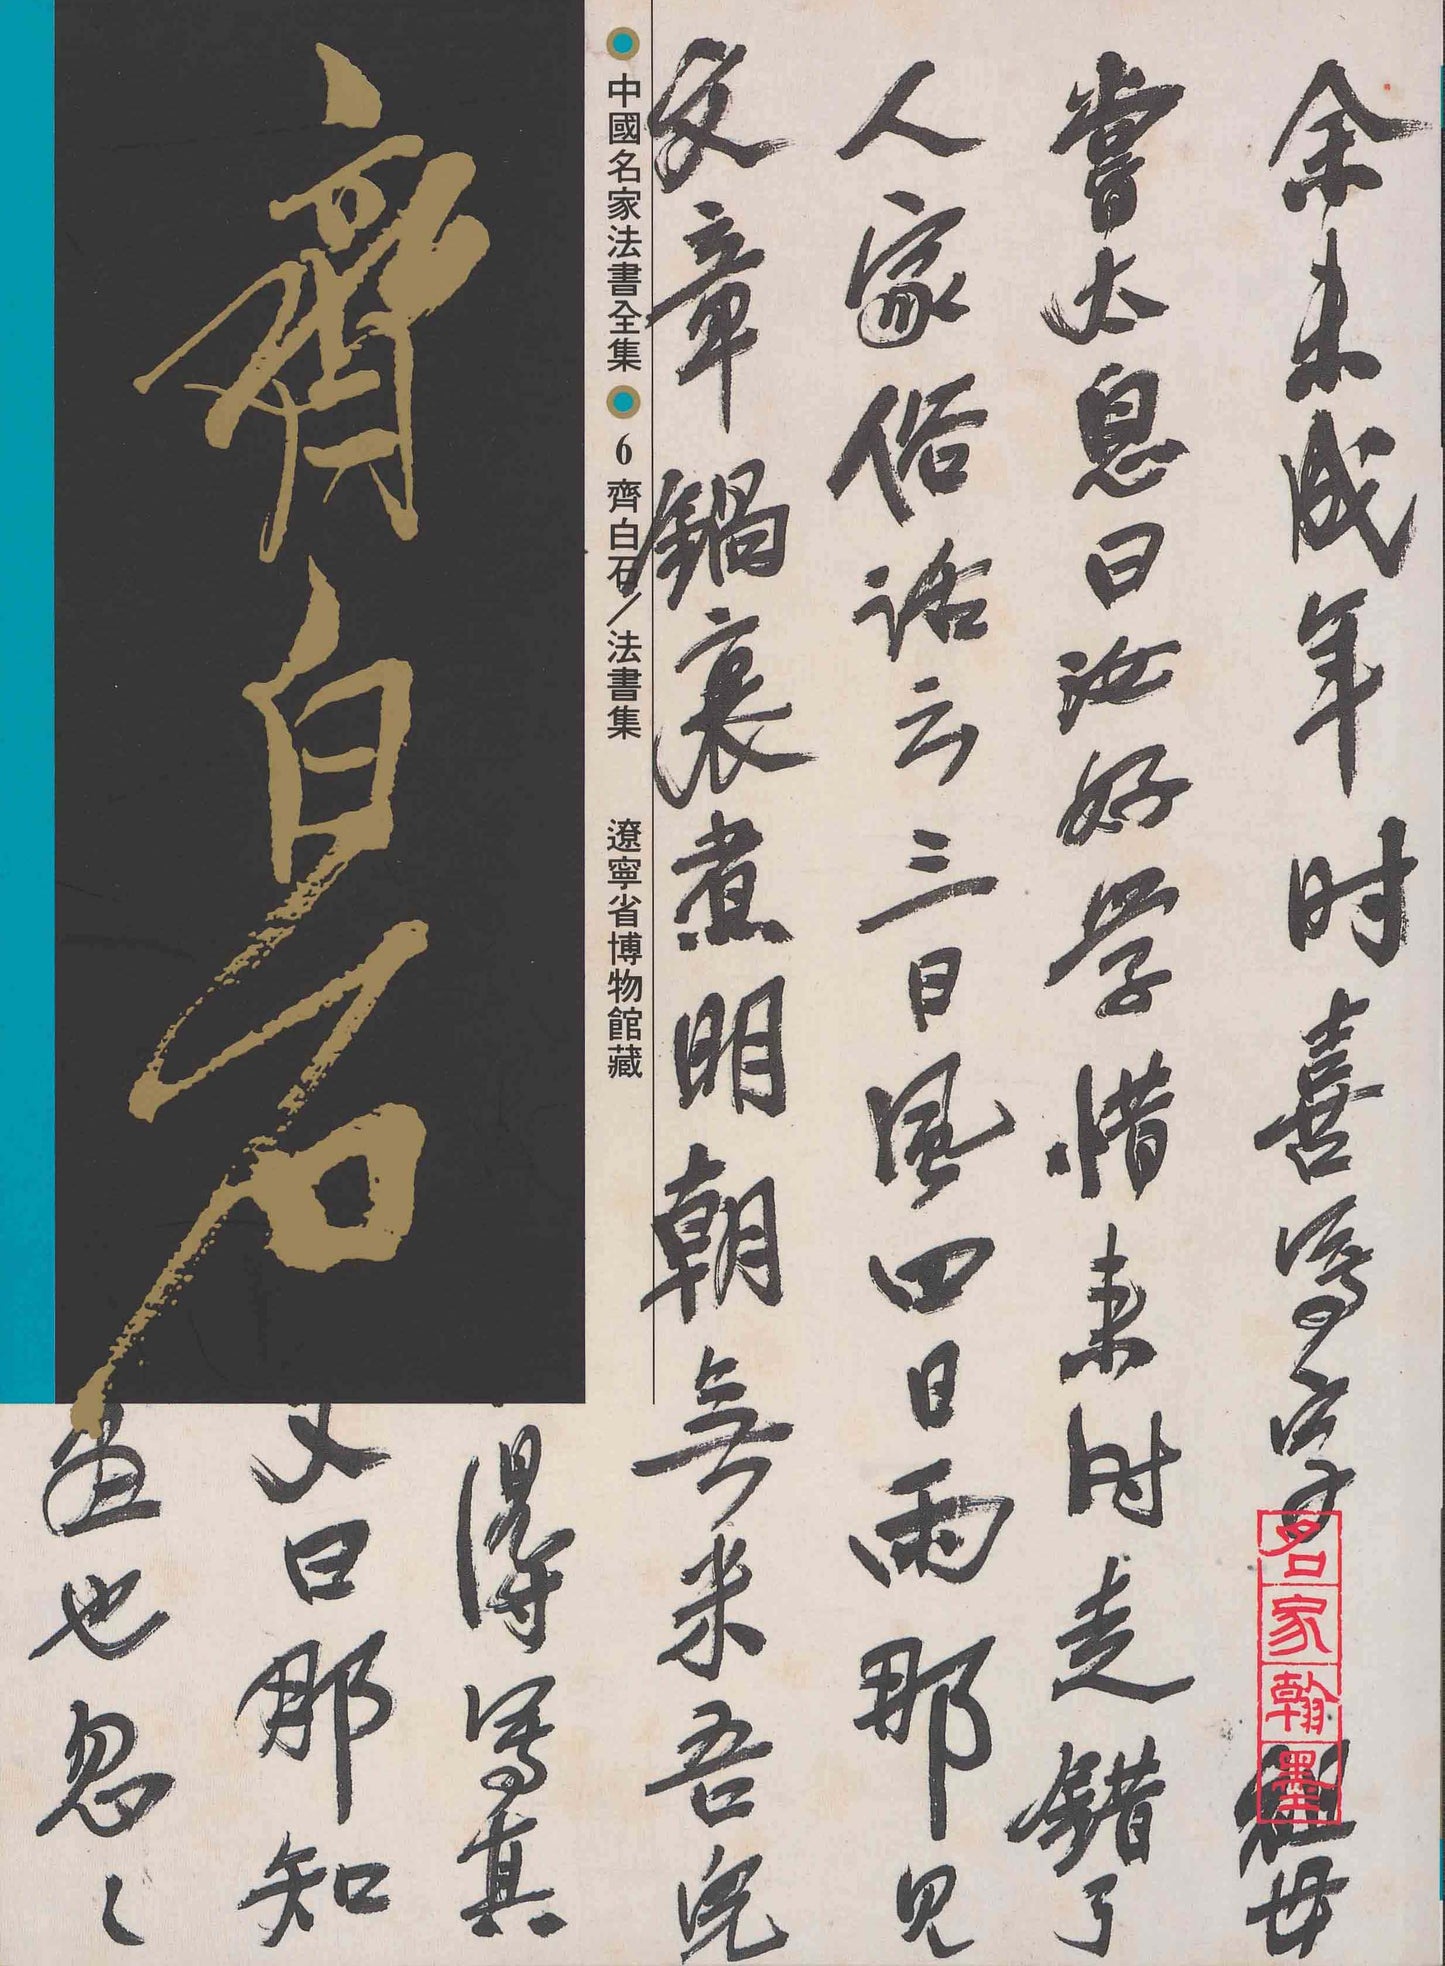 余未成年时喜写字祖母
尝太息曰汝好学惜来时走错了
人家俗话云三日风四日雨那见
文章锅裏煮明朝無米吾児
中國名家法書全集
6 齊白石/法書集 遼寧省博物館藏
得写真
文曰那知
也忽々
齊白石
名家翰墨